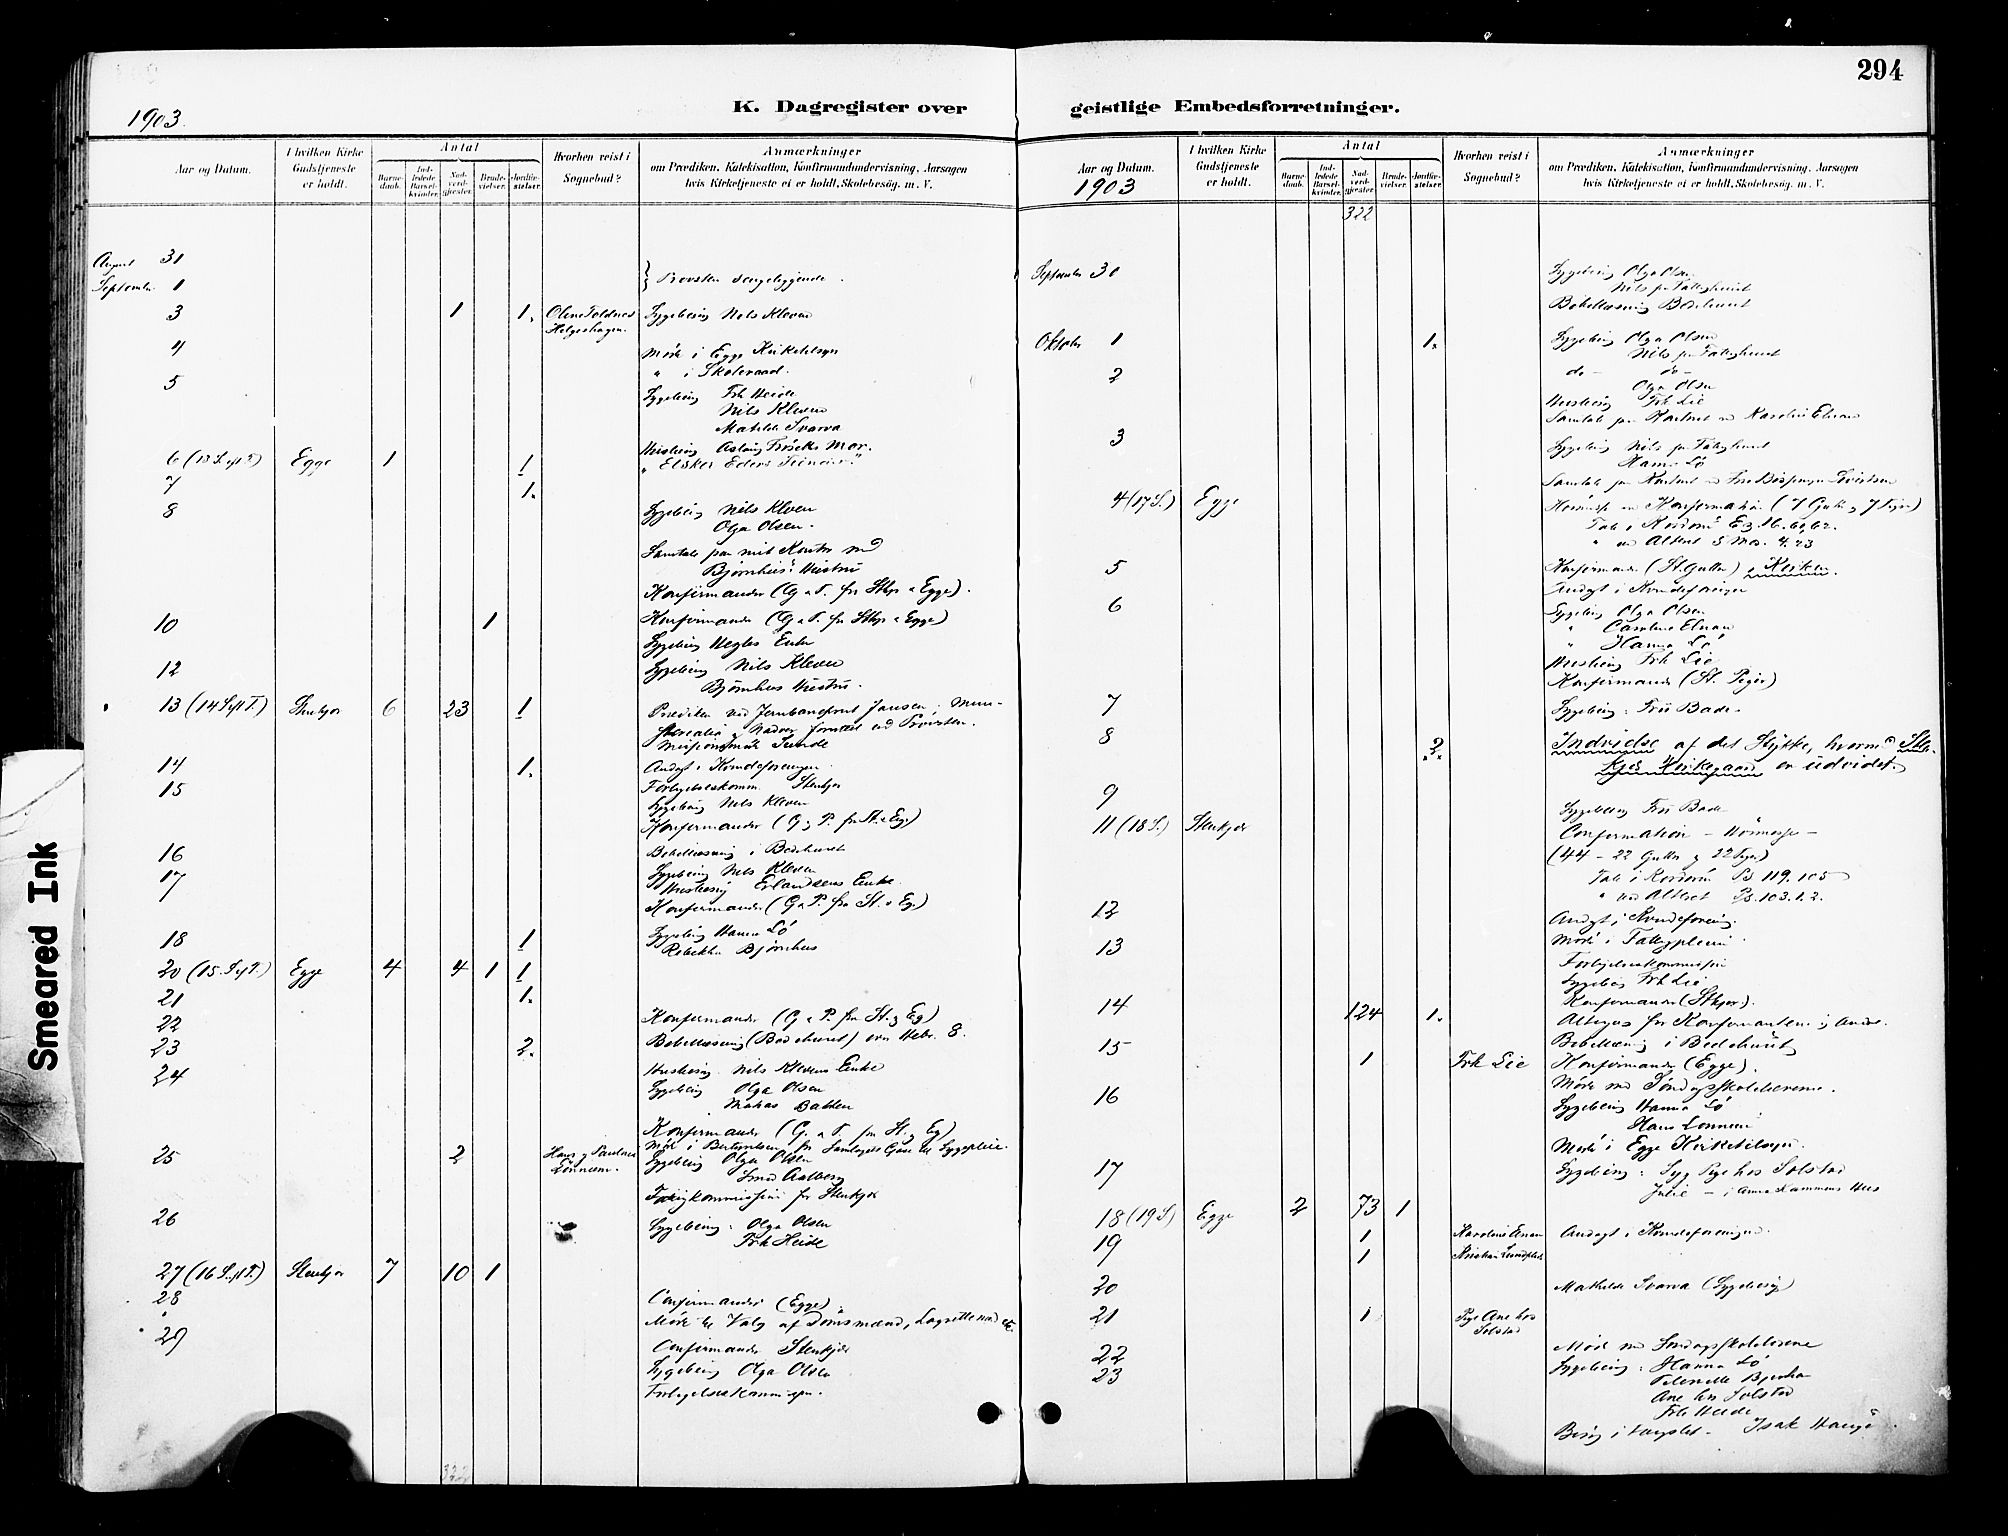 294
1903.
K. Dagregister over
Aar og Datum.
I hvilken Kirke Gudstjeneste er holdt.
Antal
Barnedaab.
Indledede Barselkvinder.
Nadverdgjæster.
Brudevielser.
Jordfæstelser.
Hvorhen reist i Sognebud?
Anmærkninger
om Prædiken, Katekisation, Konfirmandundervisning, Aarsagen
hvis Kirketjeneste ei er holdt, Skolebesøg. m. V.
August 31
September 1 } Provsten sengeliggende.
3 1 1. Oline Foldnes Sygebesøg Nils Kleven
Helgeshagen.
4 Møde i Egge Kirketilsyn
" i Skoleraad.
5 Sygebesøg Frk Heide
Nils Kleven
Matilde Svarva
Husbesøg Mor.
6 (13 S. eft T) Egge 1 1
7 1.
8 Sygebesøg Nils Kleven
Olga Olsen.
Samtale paa mit Kontor med
Bjørnhus' Hustru
Konfirmander (G & P. fra Stkjr & Egge).
10 1 Konfirmander (G & P. fra Stkjr & Egge)
Sygebesøg Enke
12 Sygebesøg Nils Kleven
Bjørnhus Hustru.
13 (14 S. eft T.) Stenkjær 6 23 1 Prædiken ved Jansen;
Nadver forrettet ved Provsten.
Missionsmøde Sunde
14 1. Andagt i Kvindeforeningen.
15 Forligelseskomm. Stenkjær
Sygebesøg Nils Kleven
Konfirmander (G og P. fra St. & Eg.)
16 Bibellæsning i Bedehuset
17 Sygebesøg Nils Kleven
Husbesøg Erlandsens Enke.
Konfirmander (G & P. fra St. & Eg.)
18 1 Sygebesøg Hanna Lø
Rebekka Bjørnhus
20 (15. S. eft T.) Egge 4 4 1 1
21 1.
22 Konfirmander (G & P. fra St. og Eg)
23 2. Bibellæsning (Bedehuset) over Hebr. 8.
24 Husbesøg Nils Klevens Enke
Sygebesøg Olga Olsen
Balden
Konfirmander (G. & P. fra St. og Eg)
25 2 Hans og Pauline Møde i Bestyrelsen for Samlagets Gave til Sygepleie
Lønnem. Sygebesøg Olga Olsen
Aalberg
Fattigkommission for Stenkjær
26 Sygebesøg: Olga Olsen
Frk Heide
27 (16 S. eft T.) Stenkjær 7 10 1
28 Confirmander (Egge)
" Møde til Valg af Domsmænd, Lagrettemænd etc.
29 Confirmander Stenkjær
Sygebesøg Olga Olsen
Forligelseskommission.
322
geistlige Embedsforretninger.
Aar og Datum.
1903
I hvilken Kirke Gudstjeneste er holdt.
Antal
Barnedaab.
Indledede Barselkvinder.
Nadverdgjæster.
Brudevielser.
Jordfæstelser.
Hvorhen reist i Sognebud?
Anmærkninger
om Prædiken, Katekisation, Konfirmandundervisning, Aarsagen
hvis Kirketjeneste ei er holdt, Skolebesøg. m. V.
322
September 30 Sygebesøg Olga Olsen
Nils paa Fattighuset
Bibellæsning Bedehuset
Oktober 1 1. Sygebesøg Olga Olsen
Nils paa Fattighuset
2 do - do -
Olga Olsen
Husbesøg Frk Lie
Samtale paa Kontoret med Karoline Elnan
3 Sygebesøg Nils paa Fattighuset
Hanna Lø
Samtale paa Kontoret med Fru
4 (17 S.) Egge Høimesse med Konfirmation (7 Gutter og 7 Piger)
Tale i Kordøren
" ved Alteret 5 Mos. 4.23
5 Konfirmander (St. Gutter) i Kirken.
Andagt i Kvindeforeningen
6 Sygebesøg Olga Olsen
" Caroline Elnan
" Hanna Lø
Husbesøg Frk Lie
Konfirmander (St. Piger)
7 Sygebesøg: Frú Bade
8 2. Indvielse af det Stykke, hvormed Stenkjær Kirkegaard er udvidet.
9 Sygebesøg Frú Bade
11 (18 S.) Stenkjær Confirmation - Høimesse -
(44 - 22 Gutter og 22 Piger)
Tale i Kordøren Ps 119.105
" ved Alteret Ps. 103.1.2.
12 Andagt i Kvindeforening.
13 Møde i Fattigpleien
Forligelseskommission
Sygebesøg Frk Lie
Konfirmander (Stkjær).
14 124 1. Altergang for Konfirmanterne og Andre.
15 Bibellæsning i Bedehuset
1 Frk Lie Konfirmander (Egge).
Møde med Søndagsskolelærerne.
16 Sygebesøg Hanna Lø
Hans Lønnem
Møde i Egge Kirketilsyn.
17 Sygebesøg: Syg Pige hos Solstad
Julie - i Anna Kammens Hus
18 (19 S) Egge 2 73 1
19 1 Karoline Elnan Andagt i Kvindeforeningen.
1 Kristian
20 Mathilde Svarva (Sygebesøg)
21 1 Pige Ane hos
Solstad
22 Møde med Søndagsskolelærerne
23 Sygebesøg: Hanna Lø
Peternelle Bjerkan
Ane hos Solstad
Frk Heide
Besøg i Fængslet - Isak Hauge.
Smeared Ink